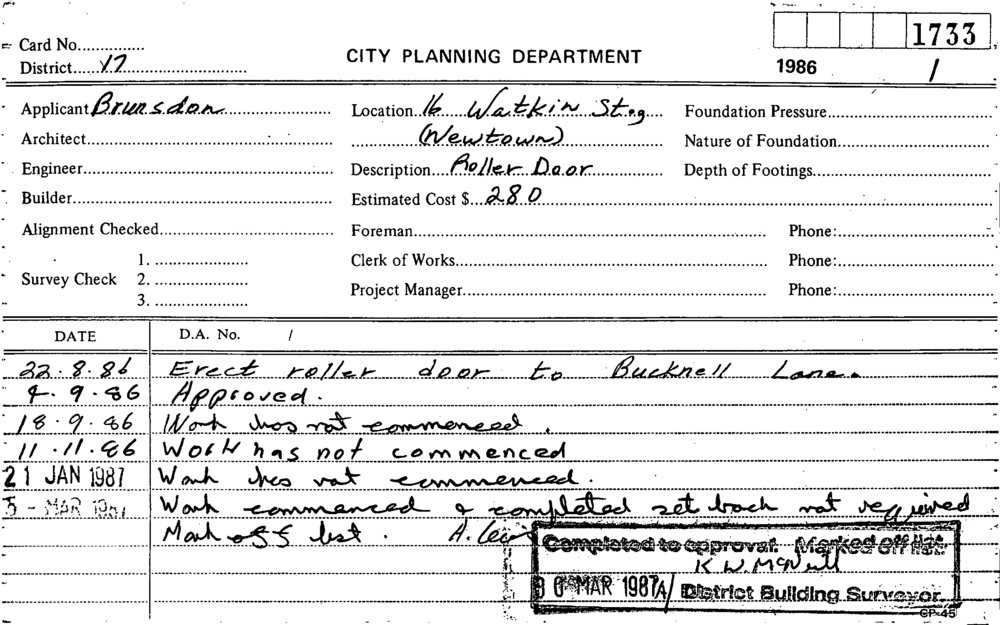 1733
Card No...............
CITY PLANNING DEPARTMENT
District......17..............................
1986 /
Applicant Brunsdon
Location 16 Watkin St
Foundation Pressure
Architect
(Newtown)
Nature of Foundation
Engineer
Description Roller Door
Depth of Footings
Builder
Estimated Cost $ 280
Alignment Checked
Foreman
Phone:
1.
Clerk of Works
Phone:
Survey Check 2.
3.
Project Manager
Phone:
DATE D.A. No. /
22.8.86 Erect roller door to Bucknell Lane.
4.9.86 Approved.
18.9.86 Work has not commenced.
11.11.86 Work has not commenced
21 JAN 1987 Work has not commenced.
5 - MAR 1987 Work commenced & completed set back not required
Mark off list. A.
Completed to approval. Marked off list.
K W. McNeill
MAR 1987 District Building Surveyor.
CP-45